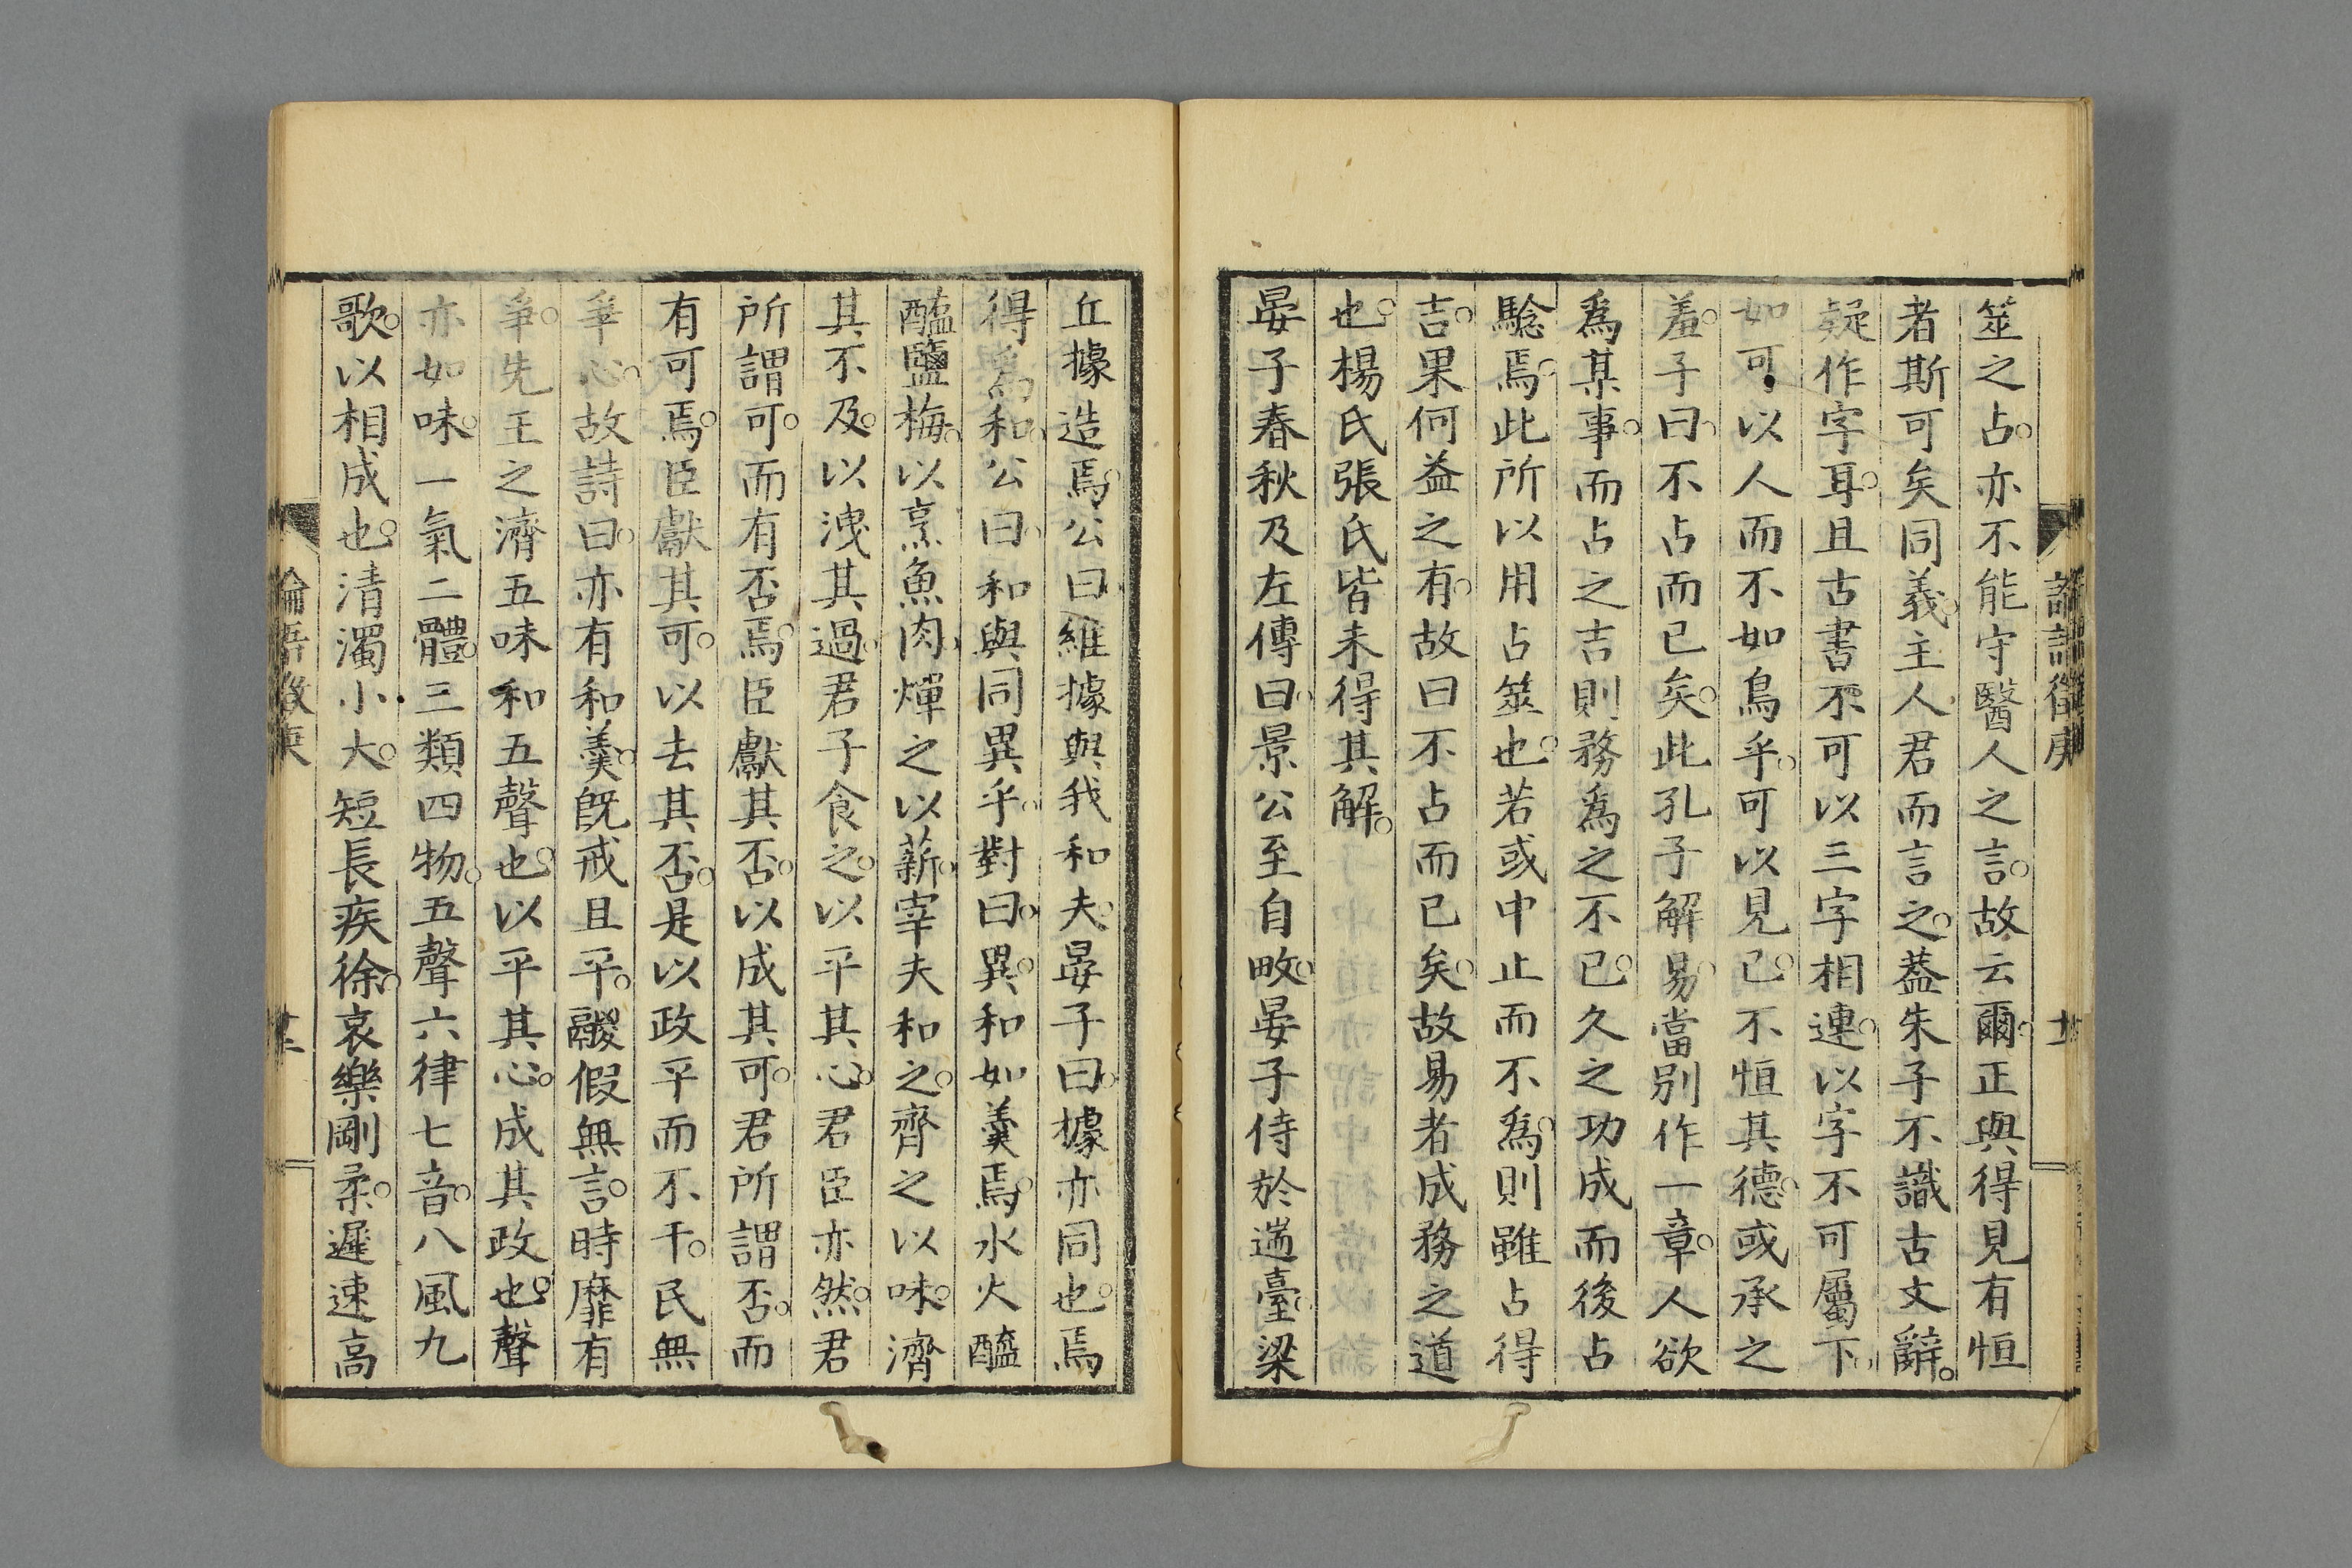 筮之占。亦不能守醫人之言。故云爾。正與得見有恒
者斯可矣同義。主人君而言之。蓋朱子不識古文辭。
疑作字耳。且古書不可以三字相連。以字不可屬下。
如可以人而不如鳥乎。可以見已。不恒其德。或承之
羞。子曰。不占而已矣。此孔子解易。當別作一章。人欲
爲某事。而占之吉則務爲之不已。久之功成而後占
騐焉。此所以用占筮也。若或中止而不爲。則雖占得
吉。果何益之有。故曰不占而已矣。故易者成務之道
也。楊氏張氏皆未得其解。
晏子春秋及左傳曰。景公至自畋。晏子侍於遄臺。梁
丘據造焉。公曰維據與我和夫。晏子曰。據亦同也。焉
得爲和。公曰。和與同異乎。對曰。異。和如羹焉。水火醯
醢鹽梅。以烹魚肉。燀之以薪。宰夫和之。齊之以味。濟
其不及。以洩其過。君子食之。以平其心。君臣亦然。君
所謂可。而有否焉。臣獻其否。以成其可。君所謂否。而
有可焉。臣獻其可。以去其否。是以政平而不干。民無
爭心。故詩曰。亦有和羹。旣戒且平。鬷假無言。時靡有
爭。先王之濟五味和五聲也。以平其心。成其政也。聲
亦如味。一氣二體。三類四物。五聲六律七音。八風九
歌。以相成也。清濁小大。短長疾徐。哀樂剛柔。遲速高